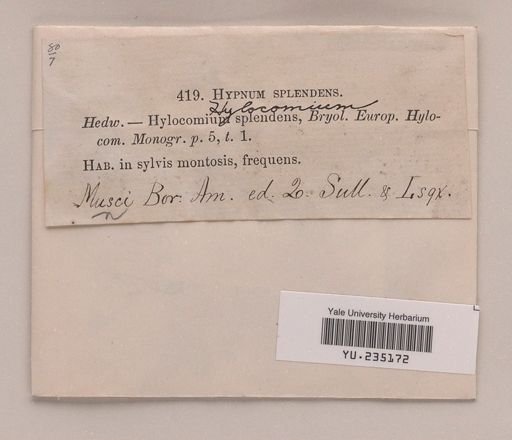 80
7
419. HYPNUM SPLENDENS.
Hylocomium
Hedw. — Hylocomium splendens, Bryol. Europ. Hylo-
com. Monogr. p. 5, t. 1.
HAB. in sylvis montosis, frequens.
Musci Bor. Am. ed. 2. Sull. & Lsqx.
Yale University Herbarium
YU.235172